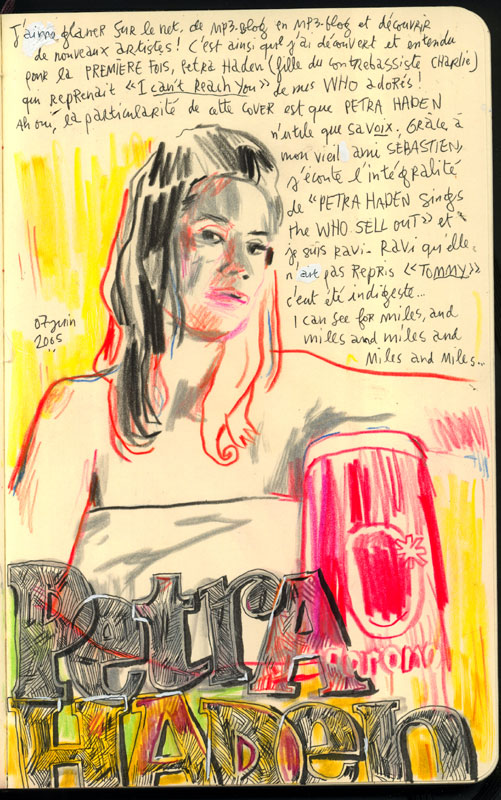 J'aime glaner sur le net, de MP3-blog en MP3-blog et découvrir
de nouveaux artistes! C'est ainsi que j'ai découvert et entendu
pour la PREMIERE FOIS, Petra Haden (fille du contrebassiste Charlie)
qui reprenait «I can't reach you» de mes WHO adorés!
Ah oui, la particularité de cette COVER est que PETRA HADEN
n'utile que sa voix. Grâce à
mon vieil ami SEBASTIEN,
j'écoute l'intégralité
de «PETRA HADEN Sings
the WHO SELL OUT» et
je suis ravi. Ravi qu'elle
n'ait pas Repris «TOMMY»
c'eut été indigeste...
I can see for miles, and
miles and miles and
Miles and Miles...
07 juin
2005
PetrA
HADen